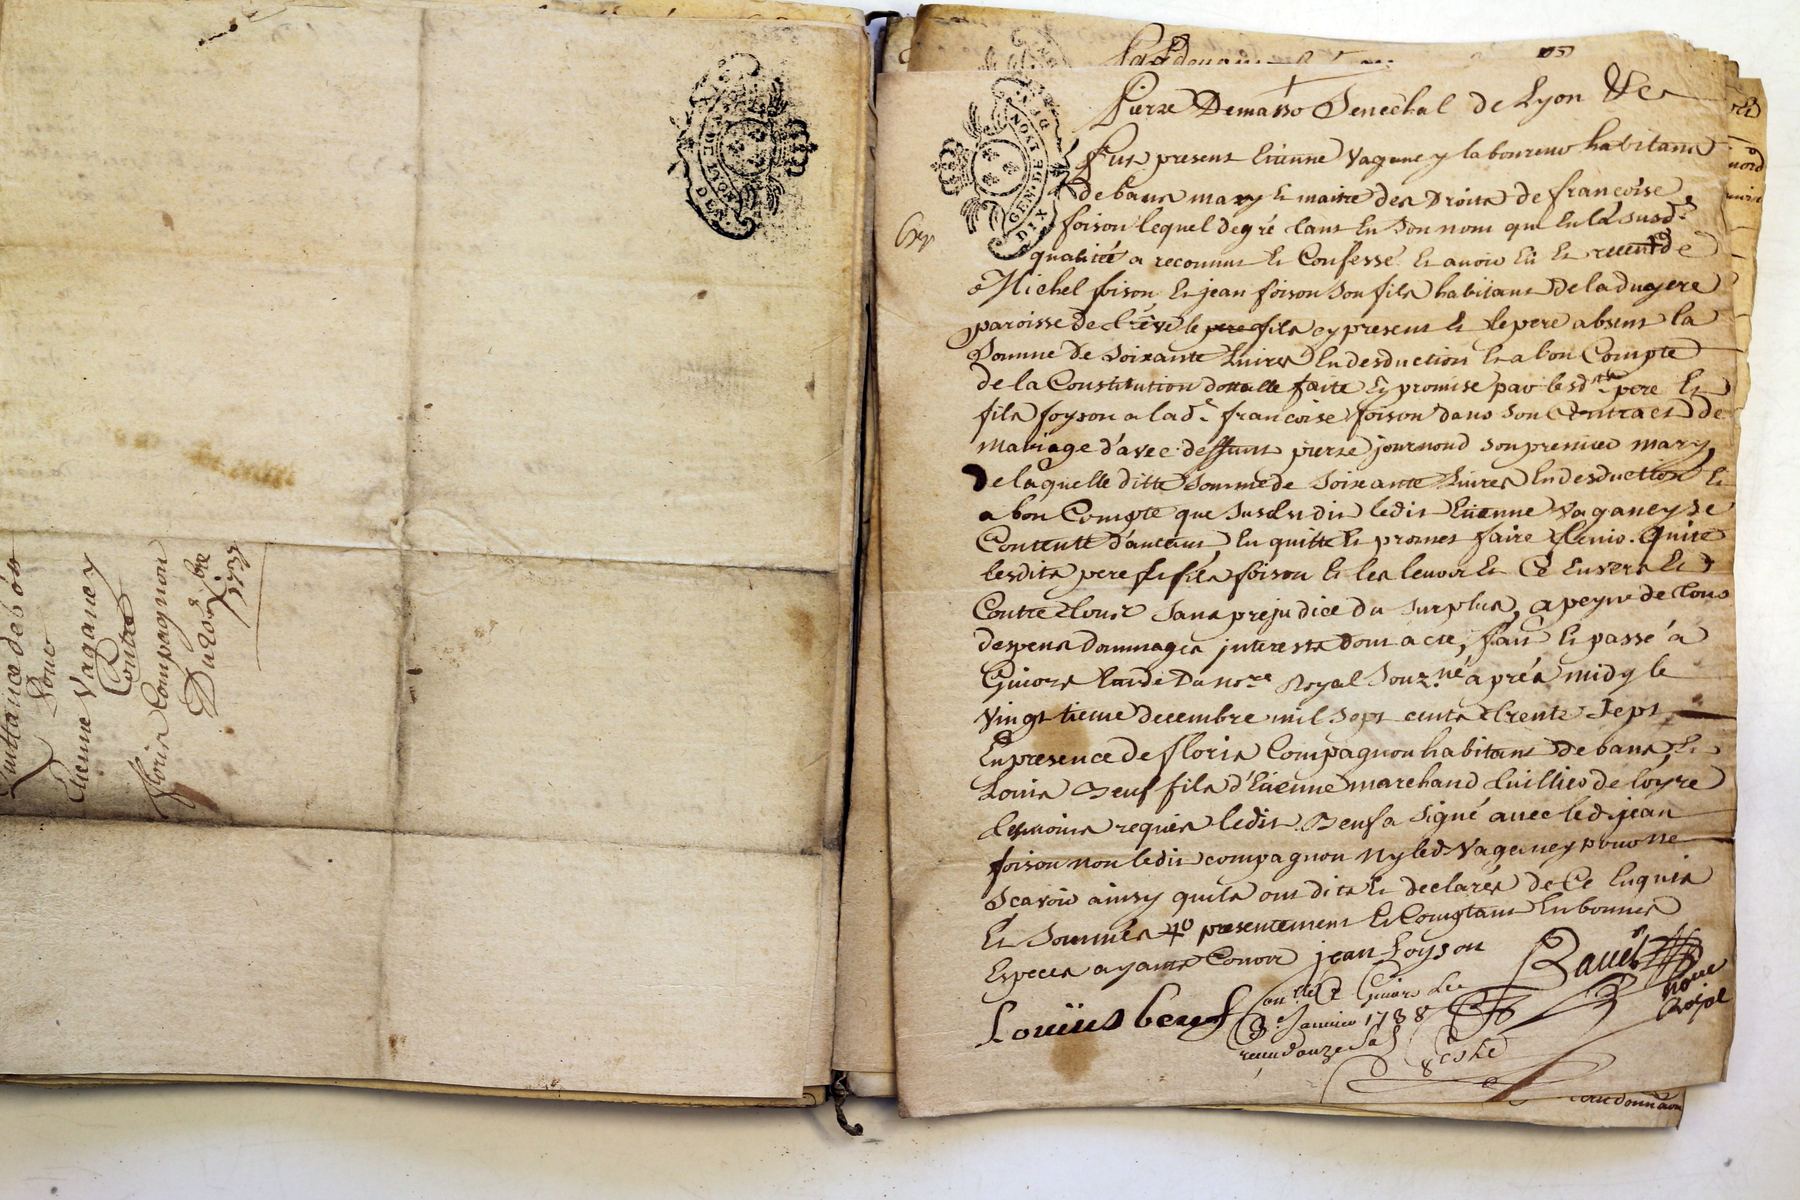 Quittance de 60#
Pour
Etienne Vaganey
Contre
floris Compagnon
Du 20e Xbre
1737
GEN. DE LYON
DIX DEN.
Pierre Demasso Senechal de Lyon &c
fut present Etienne Vaganey laboureur habitant
de bans mary et maitre des Droits de francoise
foison lequel de gré tant en son nom que en la susd.e
qualité a reconnu et Confessé et avoir eu et receu de
Michel foison et jean foison son fils habitant de la dugere
paroisse de le pere fils cy present et le pere absent la
Somme de Soixante Livres en desduction et a bon Compte
de la Constitution dotalle faite et promise par lesd.ts pere et
fils foyson a lad.e francoise foison dans son Contract de
mariage d'avec deffunt pierre journoud son premier mary,
De laquelle ditte Somme de Soixante Livres en desduction et
a bon Compte que susd ledit Etienne Vaganey se
Contente d'autant, en quitte et promet faire tenir quitte
lesdits pere et fils foison et les leurs et Ce envers et
Contre tous sans prejudice du surplus, a peyne de tous
despens dommages interests dont acte, fait et passé a
Givors Etude Du no.re Royal Souz.né aprés midy le
Vingt tieme decembre mil sept cents trente Sept
En presence de floris Compagnon habitant de bans, et
Louis Beuf fils d'Etienne marchand de Loyre
temoins requis ledit Beuf a signé avec led. jean
foison non ledit compagnon ny led. Vaganey pour ne
Scavoir ainsy quils ont dits et declarés de Ce Enquis
Et Sommés presentement et Comptant En bonnes
Especes ayants Cours jean foyson
Louiis beuf
Givors Le
8e Janvier 1738
receu douze s
no.re
Royal